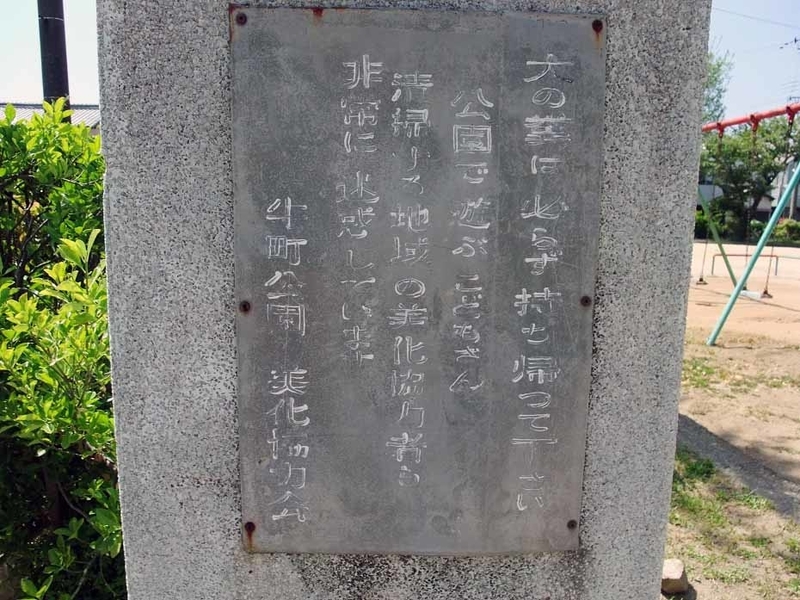 犬の糞は必ず持ち帰って下さい
公園で遊ぶこどもさん
清掃する地域の美化協力者ら
非常に迷惑しています
牛町公園 美化協力会